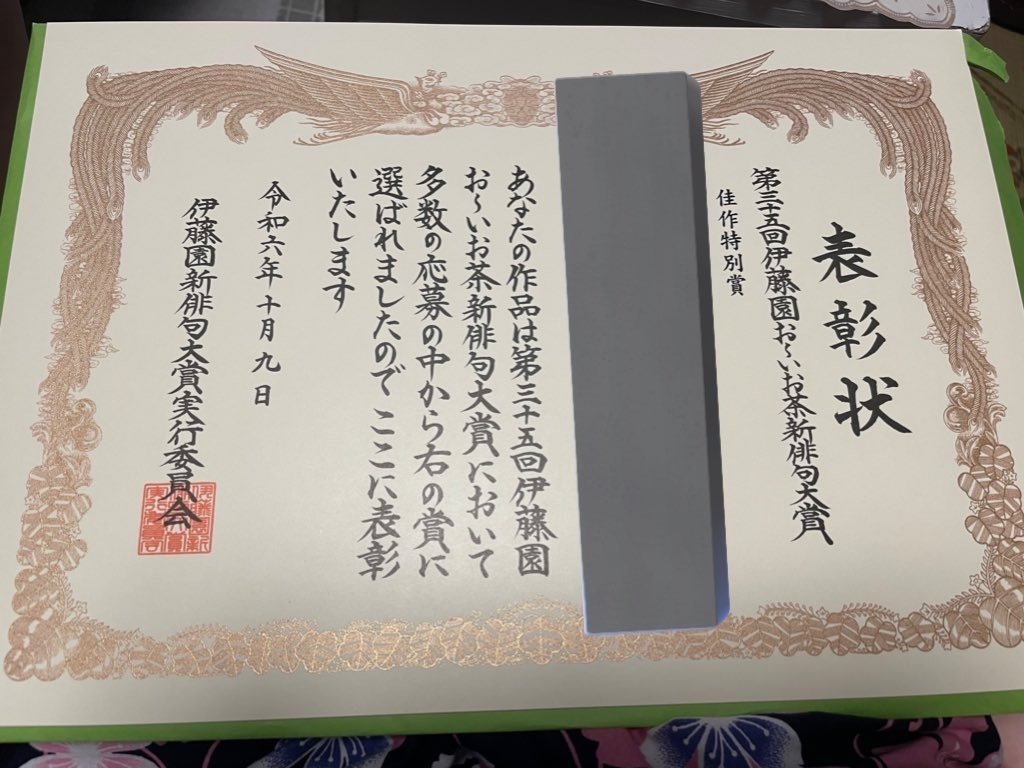 表彰状
第三十五回伊藤園お〜いお茶新俳句大賞
佳作特別賞
あなたの作品は第三十五回伊藤園
お〜いお茶新俳句大賞において
多数の応募の中から右の賞に
選ばれましたのでここに表彰
いたします
令和六年十月九日
伊藤園新俳句大賞実行委員会